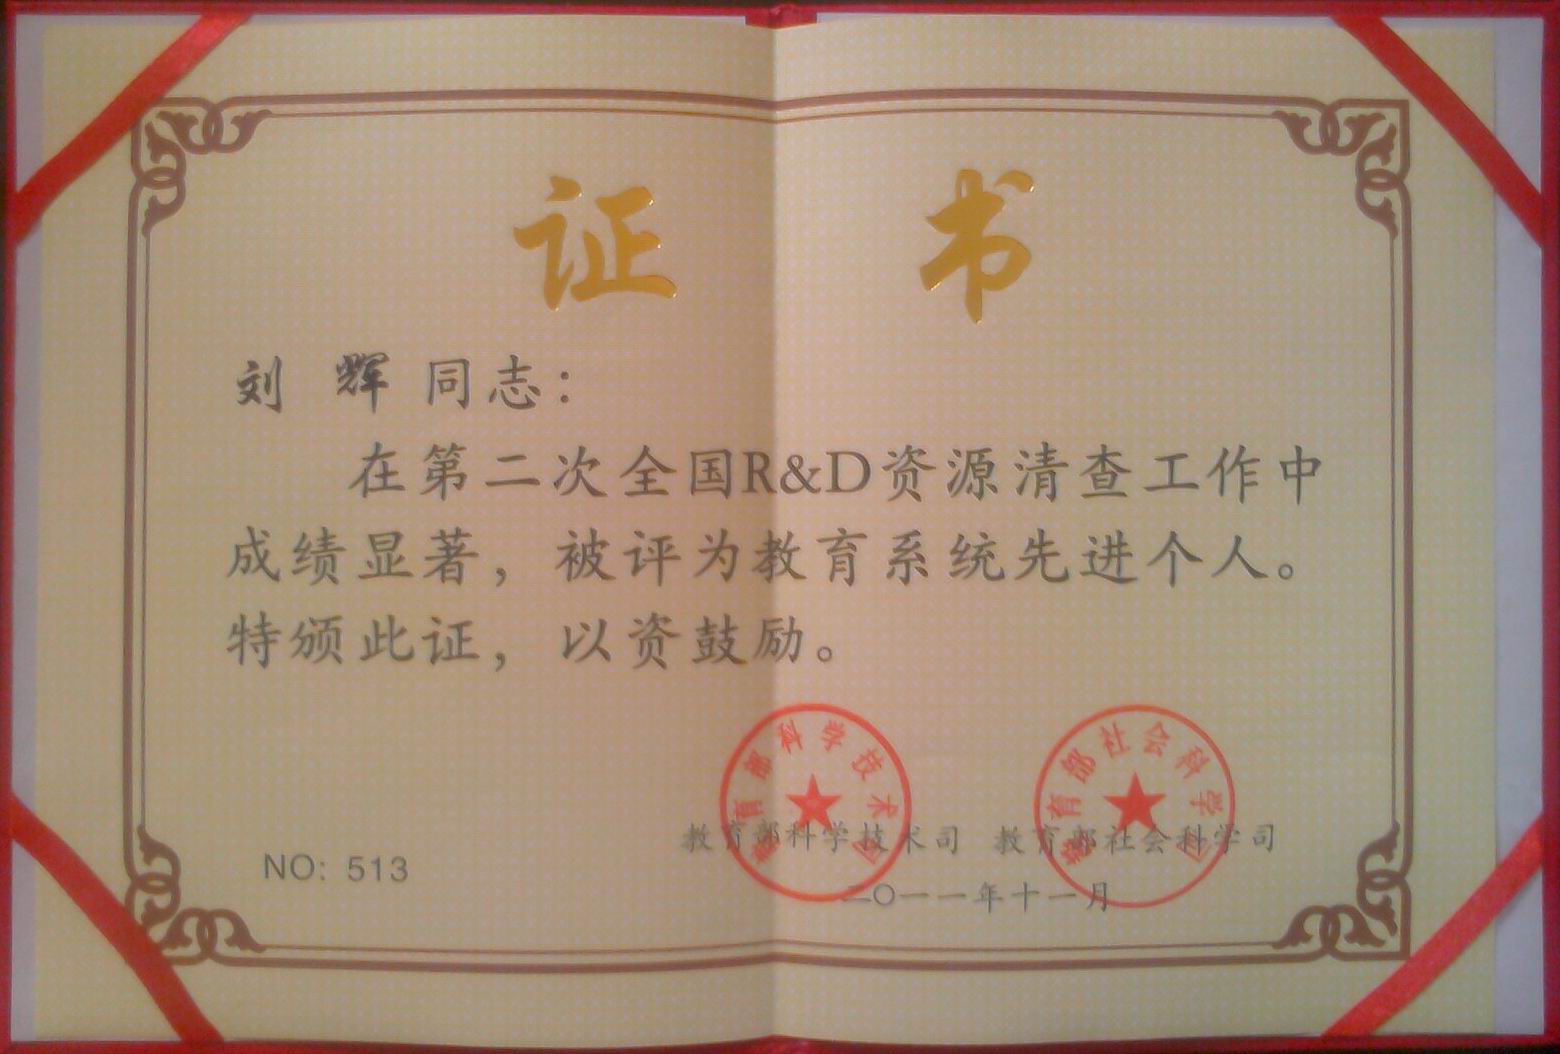 证 书
刘 辉 同志：
在第二次全国R&D资源清查工作中
成绩显著，被评为教育系统先进个人。
特颁此证，以资鼓励。
教育部科学技术司
教育部社会科学司
教育部科学技术司 教育部社会科学司
二〇一一年十一月
NO: 513